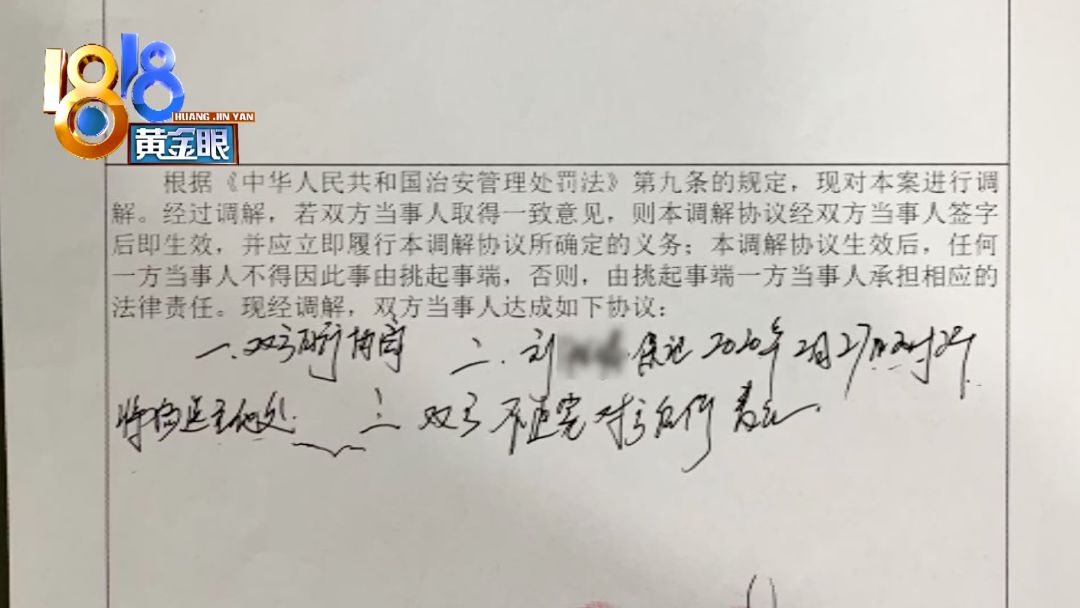 1818
HUANG JIN YAN
黄金眼
根据《中华人民共和国治安管理处罚法》第九条的规定，现对本案进行调
解。经过调解，若双方当事人取得一致意见，则本调解协议经双方当事人签字
后即生效，并应立即履行本调解协议所确定的义务；本调解协议生效后，任何
一方当事人不得因此事由挑起事端，否则，由挑起事端一方当事人承担相应的
法律责任。现经调解，双方当事人达成如下协议：
一、双方 二、刘 保证2020年2月27日
三、双方不追究对方任何责任.